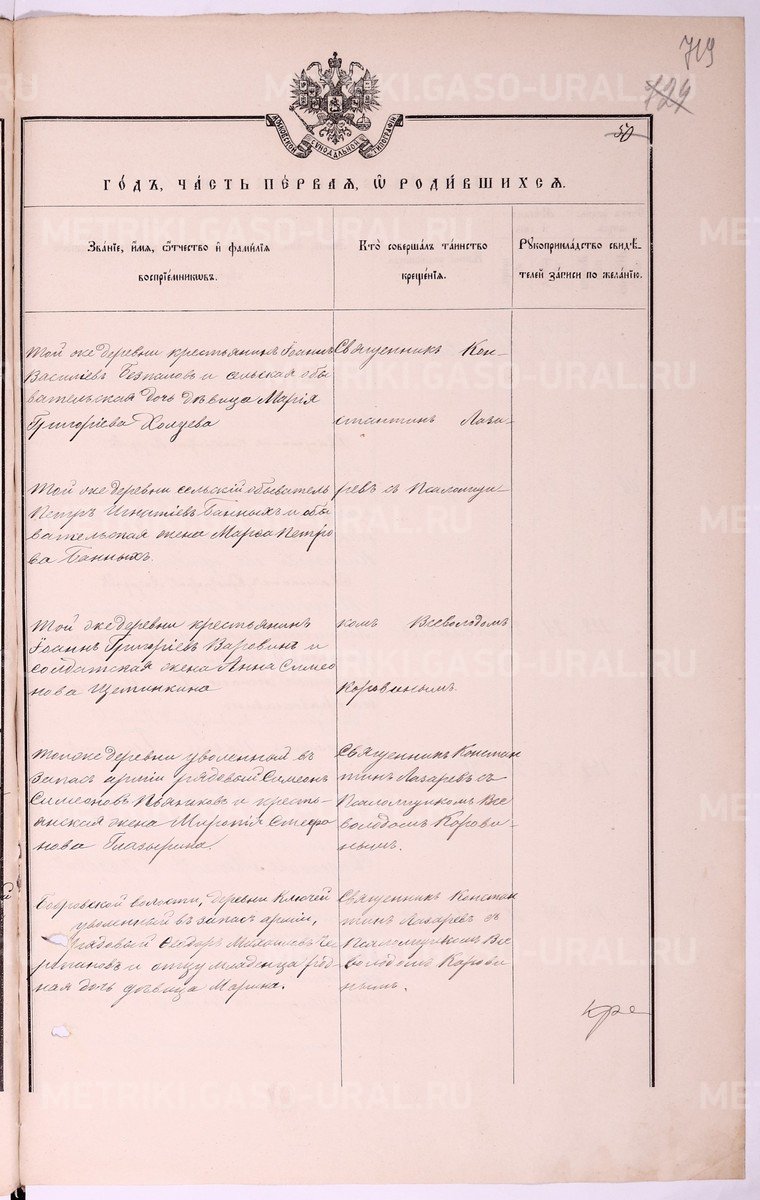 719
124
50
МОСКОВСКОЙ СѴНОДАЛЬНОЙ ТИПОГРАФІИ
ГО́ДЪ, ЧА́СТЬ ПЕ́РВАЯ, Ѿ РОДИ́ВШИХСЯ.
Зва́ніе, и́мя, ѻ҆́тчество и҆ фами́лія
воспріе́мникѡвъ.
Кто̀ соверша́лъ та́инство
креще́нія.
Рꙋкоприкла́дство свидѣ́-
телей за́писи по жела́нію.
Той же деревни крестьянинъ Іоаннъ
Василіевъ Безпаловъ и сельская обы
вательская дочь дѣвица Марія
Григоріева Холуева
Священникъ Кон-
стантинъ Лаза-
Той же деревни сельскій обыватель
Петръ Игнатіевъ Банныхъ и обы
вательская жена Марѳа Петро
ва Банныхъ.
ревъ съ Псаломщи-
Той же деревни крестьянинъ
Іоаннъ Григоріевъ Варовинъ и
солдатская жена Анна Симео
нова Щеминкина
комъ Всеволодомъ
Коровинымъ
Той же деревни уволенной въ
запасъ арміи рядовой Симеонъ
Симеоновъ Пьянковъ и кресть-
янская жена Миропія Стефа
нова Глазырина.
Священникъ Констан
тинъ Лазаревъ съ
Псаломщикомъ Все
володомъ Корови-
нымъ.
Бобровской волости, деревни Ключей
уволенный въ запасъ арміи,
рядовый Ѳеодоръ
и отцу младенца род
ная дочь дѣвица Марина.
Священникъ Констан
тинъ Лазаревъ съ
Псаломщикомъ Все
володомъ Корови
нымъ.
кре
METRIKI.GASO-URAL.RU